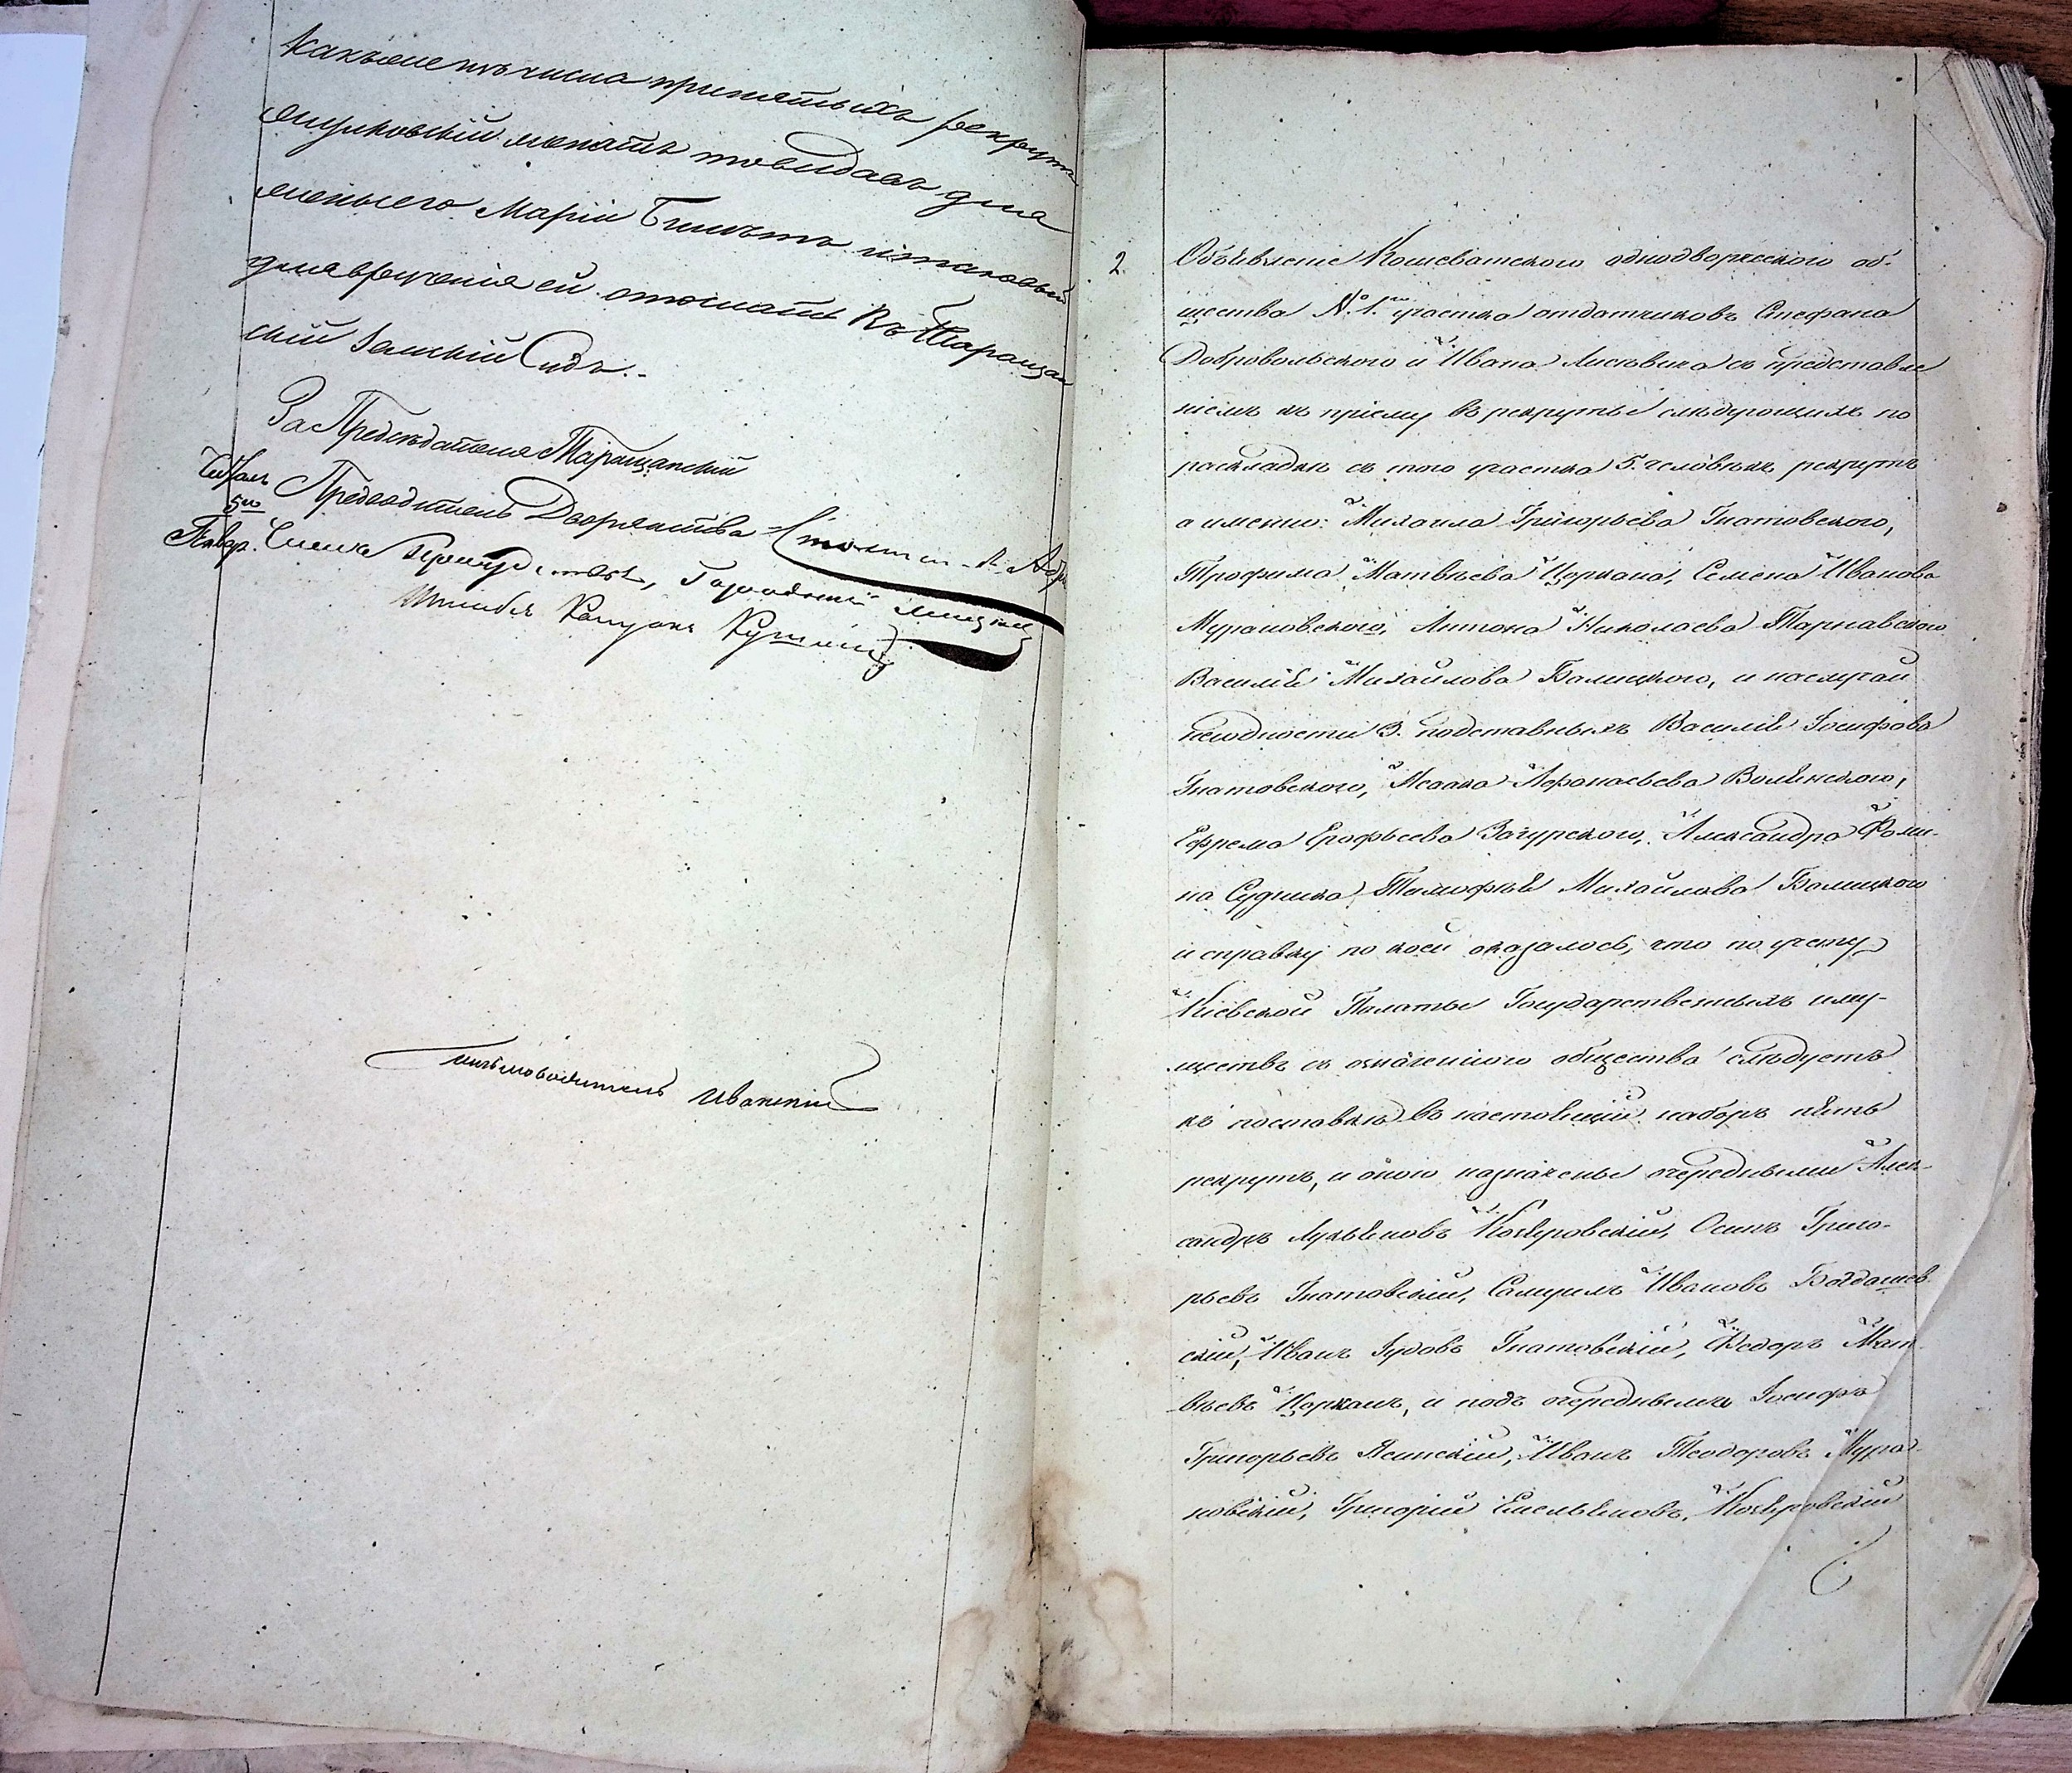 какъ онъ изъ числа принятыхъ рекрутъ
женатъ то выдавъ для
жены его Маріи Билетъ и таковый
для врученія ей отослать въ Таращан
скій Земскій Судъ.-
За Предсѣдателя Таращанскій
Предводитель Дворянства
Городничій
Штабсъ Капитанъ
Письмоводитель Иваницкій
2. Объявленіе Кошеватского однодворческого об-
щества № 1го участка отдатчиковъ Стефана
Добровольского и Ивана Лисѣвича съ представле
ніемъ къ пріему въ рекруты слѣдующихъ по
раскладкѣ съ того участка 5. человѣкъ рекрутъ
а именно: Михаила Григорьева Гнатовского,
Трофима Матвѣева Церкана, Семена Иванова
Мурановского, Антона Николаева Тарнавского
Василія Михайлова Балицкого, и наслучай
негодности 3. подставныхъ Василія Іосифова
Гнатовского, Исаака Афанасьева Волянского,
Ефрема Ерофѣева Загурского, Александра Фоми-
на Судчика Тимофѣя Михайлова Балицкого
и справку по коей оказалось, что по учету
Кіевской Палаты Государственныхъ иму-
ществъ съ означенного общества слѣдуетъ
къ поставкѣ въ настоящій наборъ пять
рекрутъ, и оного назначены очередными Алек-
сандръ Лукьяновъ Осипъ Григо-
рьевъ Гнатовскій, Самуилъ Ивановъ Богдашев
скій, Иванъ Іудовъ Гнатовскій, Федоръ Мат
вѣевъ Церканъ, и подъ очереднымъ Іосифъ
Григорьевъ Ясинскій, Иванъ Теодоровъ Мура-
новскій, Григорій Емельяновъ